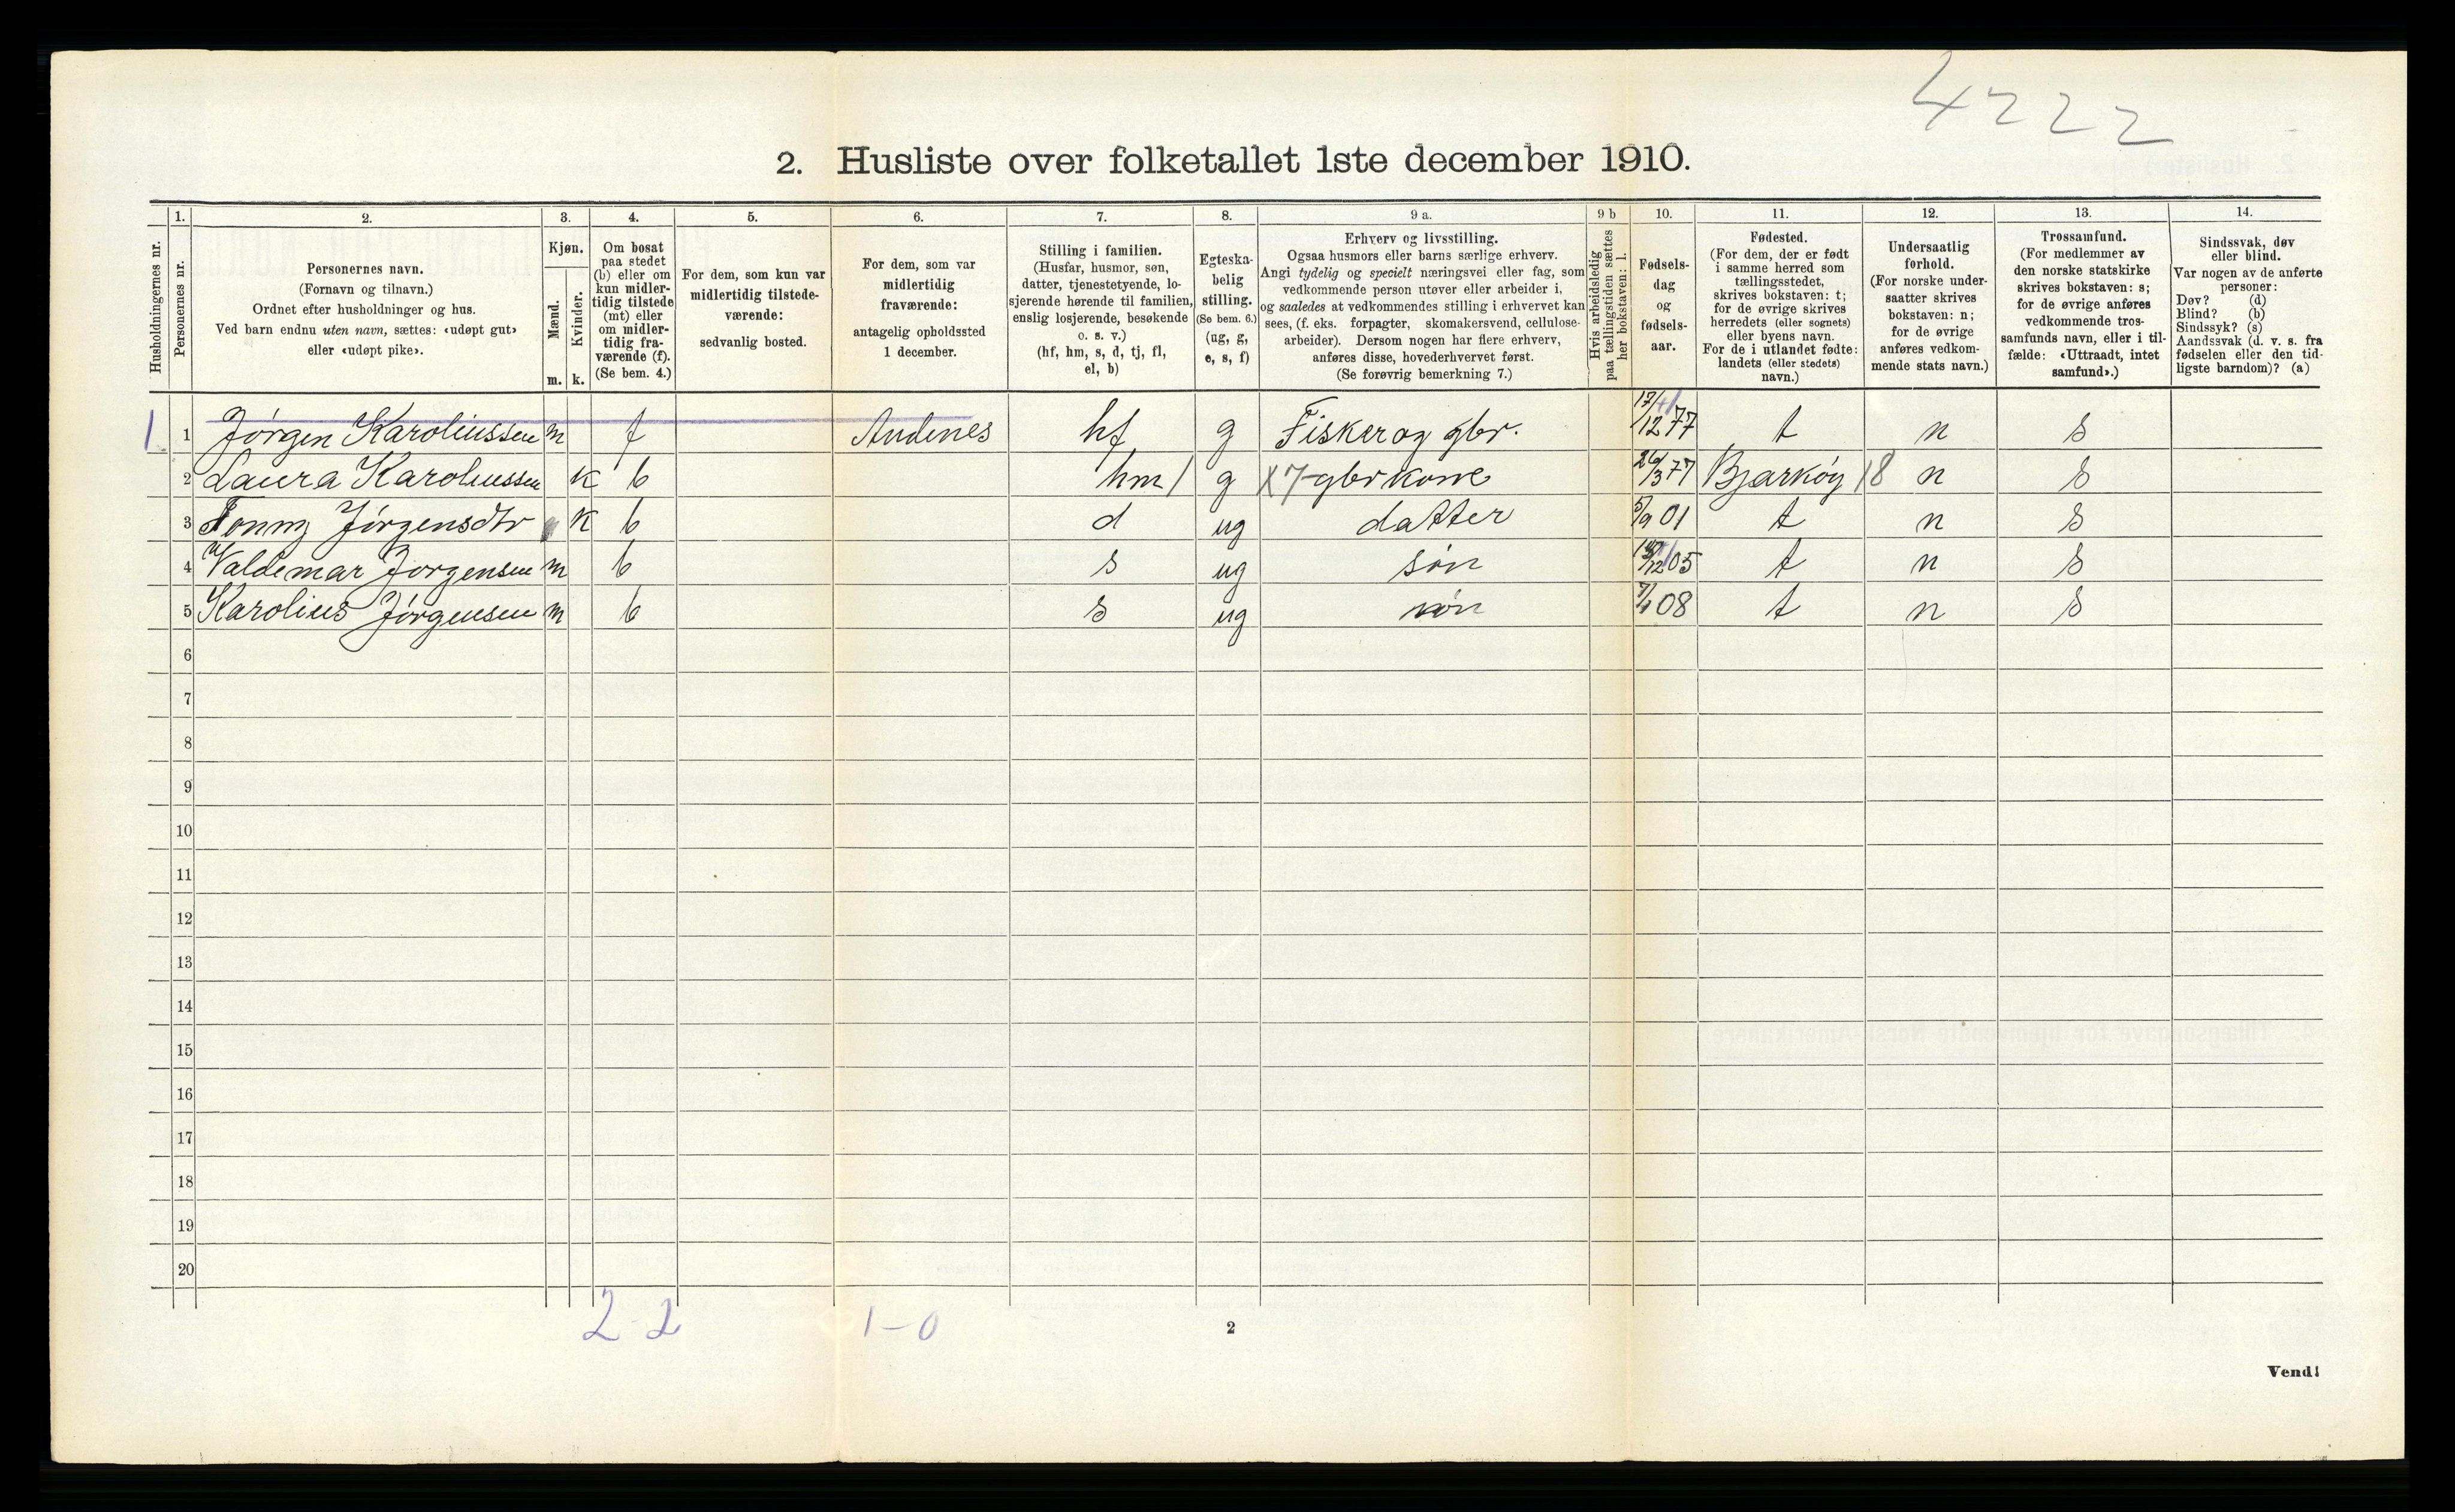 4222
2. Husliste over folketallet 1ste december 1910.
Husholdningernes nr.
1. Personernes nr.
2. Personernes navn.
(Fornavn og tilnavn.)
Ordnet efter husholdninger og hus.
Ved barn endnu uten navn, sættes: «udøpt gut»
eller «udøpt pike».
3. Kjøn.
Mænd. m.
Kvinder. k.
4. Om bosat
paa stedet
(b) eller om
kun midler-
tidig tilstede
(mt) eller
om midler-
tidig fra-
værende (f).
(Se bem. 4.)
5. For dem, som kun var
midlertidig tilstede-
værende:
sedvanlig bosted.
6. For dem, som var
midlertidig
fraværende:
antagelig opholdssted
1 december.
7. Stilling i familien.
(Husfar, husmor, søn,
datter, tjenestetyende, lo-
sjerende hørende til familien,
enslig losjerende, besøkende
o. s. v.)
(hf, hm, s, d, tj, fl,
el, b)
8. Egteska-
belig
stilling.
(Se bem. 6.)
(ug, g,
e, s, f)
9 a. Erhverv og livsstilling.
Ogsaa husmors eller barns særlige erhverv.
Angi tydelig og specielt næringsvei eller fag, som
vedkommende person utøver eller arbeider i,
og saaledes at vedkommendes stilling i erhvervet kan
sees, (f. eks. forpagter, skomakersvend, cellulose-
arbeider). Dersom nogen har flere erhverv,
anføres disse, hovederhvervet først.
(Se forøvrig bemerkning 7.)
9 b Hvis arbeidsledig
paa tællingstiden sættes
her bokstaven: l.
10. Fødsels-
dag
og
fødsels-
aar.
11. Fødested.
(For dem, der er født
i samme herred som
tællingsstedet,
skrives bokstaven: t;
for de øvrige skrives
herredets (eller sognets)
eller byens navn.
For de i utlandet fødte:
landets (eller stedets)
navn.)
12. Undersaatlig
forhold.
(For norske under-
saatter skrives
bokstaven: n;
for de øvrige
anføres vedkom-
mende stats navn.)
13. Trossamfund.
(For medlemmer av
den norske statskirke
skrives bokstaven: s;
for de øvrige anføres
vedkommende tros-
samfunds navn, eller i til-
fælde: «Uttraadt, intet
samfund».)
14. Sindssvak, døv
eller blind.
Var nogen av de anførte
personer:
Døv? (d)
Blind? (b)
Sindssyk? (s)
Aandssvak (d. v. s. fra
fødselen eller den tid-
ligste barndom)? (a)
1 1 Jørgen Karoliussen m f Andenes hf g Fisker og gbr. 17/12 77 t n s
2 Laura Karoliussen k b hm 1 g X7-gbrkone 26/3 77 Bjarkøy 18 n s
3 Jørgensdtr k b d ug datter 5/9 01 t n s
4 Valdemar Jorgensen m b s ug søn 05 t n s
5 Karolius Jørgensen m b s ug søn 08 t n s
6
7
8
9
10
11
12
13
14
15
16
17
18
19
20
2-2 1-0
2
Vend!